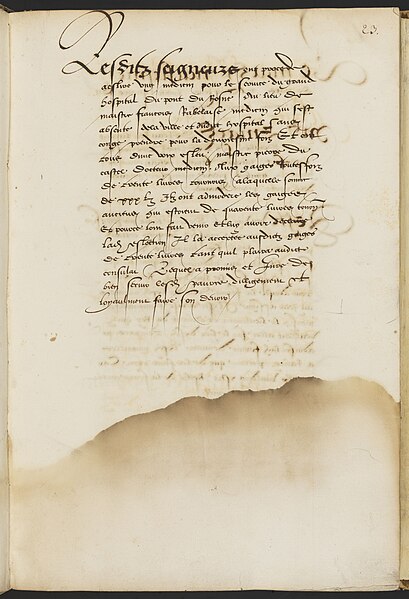 23.
Lesditz seigneurs ont procedé
a eslire ung medecin pour le service du grand
hospital du pont du Rosne Au lieu de
maistre francoys Rabelaise medecin qui sest
absente de la ville et dudit hospital sans
conge prendre pour la deuxiesme foys Et
tous dune voix esleu maistre pierre du
castel docteur medecin Aux gaiges toutesfoys
de trente livres tournois a laquelle somme
de xxx lt Ilz ont admodere les gaiges
anciens qui estoient de quarante livres tournois
Et pource lont fait venir et luy avoir
ladite eslection Il la acceptee ausditz gaiges
de trente livres tant quil plaira audit
consulat Lequel a promis et Jure de
bien servir lesditz pauvres diligemment et
loyaulment faire son devoir